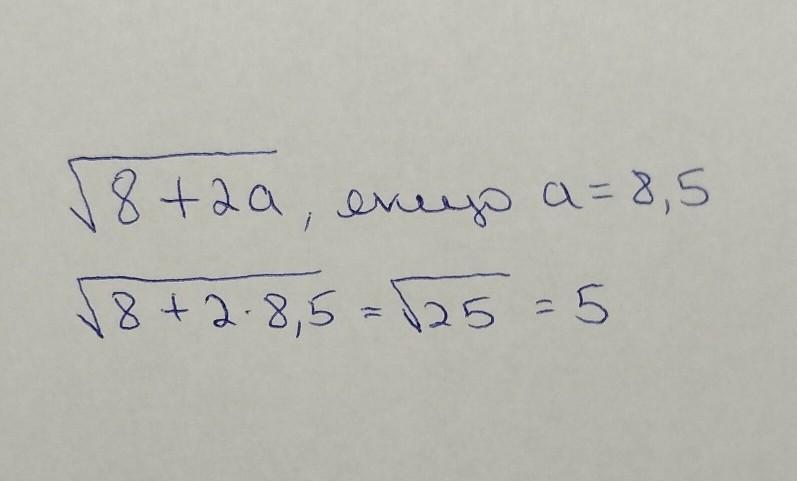 √8+2a, якщо a=8,5
√8+2·8,5=√25=5